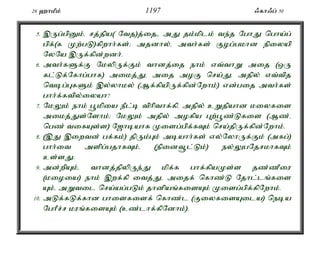 26 ஹாமீம் 1197 ஃகாஃப் 50
5. இருப்பினும், சத்திய( வேத)த்தை, அது தம்மிடம் வந்த போது பொய்ப்
பிக்(க முற்படு)கிறார்கள்; அதனால், அவர்கள் குழப்பமான நிலையி
லேயே இருக்கின்றனர்.
6. அவர்களுக்கு மேலிருக்கும் வானத்தை நாம் எவ்வாறு அதை (ஒரு
கட்டுக்கோப்பாக) அமைத்து, அதை அழகு செய்து, அதில் எவ்வித
வெடிப்புகளும் இல்லாமல் (ஆக்கியிருக்கின்றோம்) என்பதை அவர்கள்
பார்க்கவில்லையா?
7. மேலும் நாம் பூமியை நீட்டி விரிவாக்கி, அதில் உறுதியான மலைகளை
அமைத்துள்ளோம்; மேலும் அதில் அழகிய புற்பூண்டுகளை (ஆண்,
பெண் வகையுள்ள) ஜோடியாக முளைப்பிக்கவும் செய்திருக்கின்றோம்.
8. (இது இறைவன் பக்கம்) திரும்பும் அடியார்கள் எல்லோருக்கும் (அகப்)
பார்வை அளிப்பதாகவும், (நினைவூட்டும்) நல்லுபதேசமாகவும்
உள்ளது.
9. அன்றியும், வானத்திலிருந்து மிக்க பாக்கியமுள்ள தண்ணீரை
(மழையை) நாம் இறக்கி வைத்து, அதைக் கொண்டு தோட்டங்களை
யும், அறுவடை செய்யப்படும் தானியங்களையும் முளைப்பிக்கிறோம்.
10. அடுக்கடுக்கான பாளைகளைக் கொண்ட (குலைகளையுடைய) நெடிய
பேரீச்ச மரங்களையும் (உண்டாக்கினோம்).